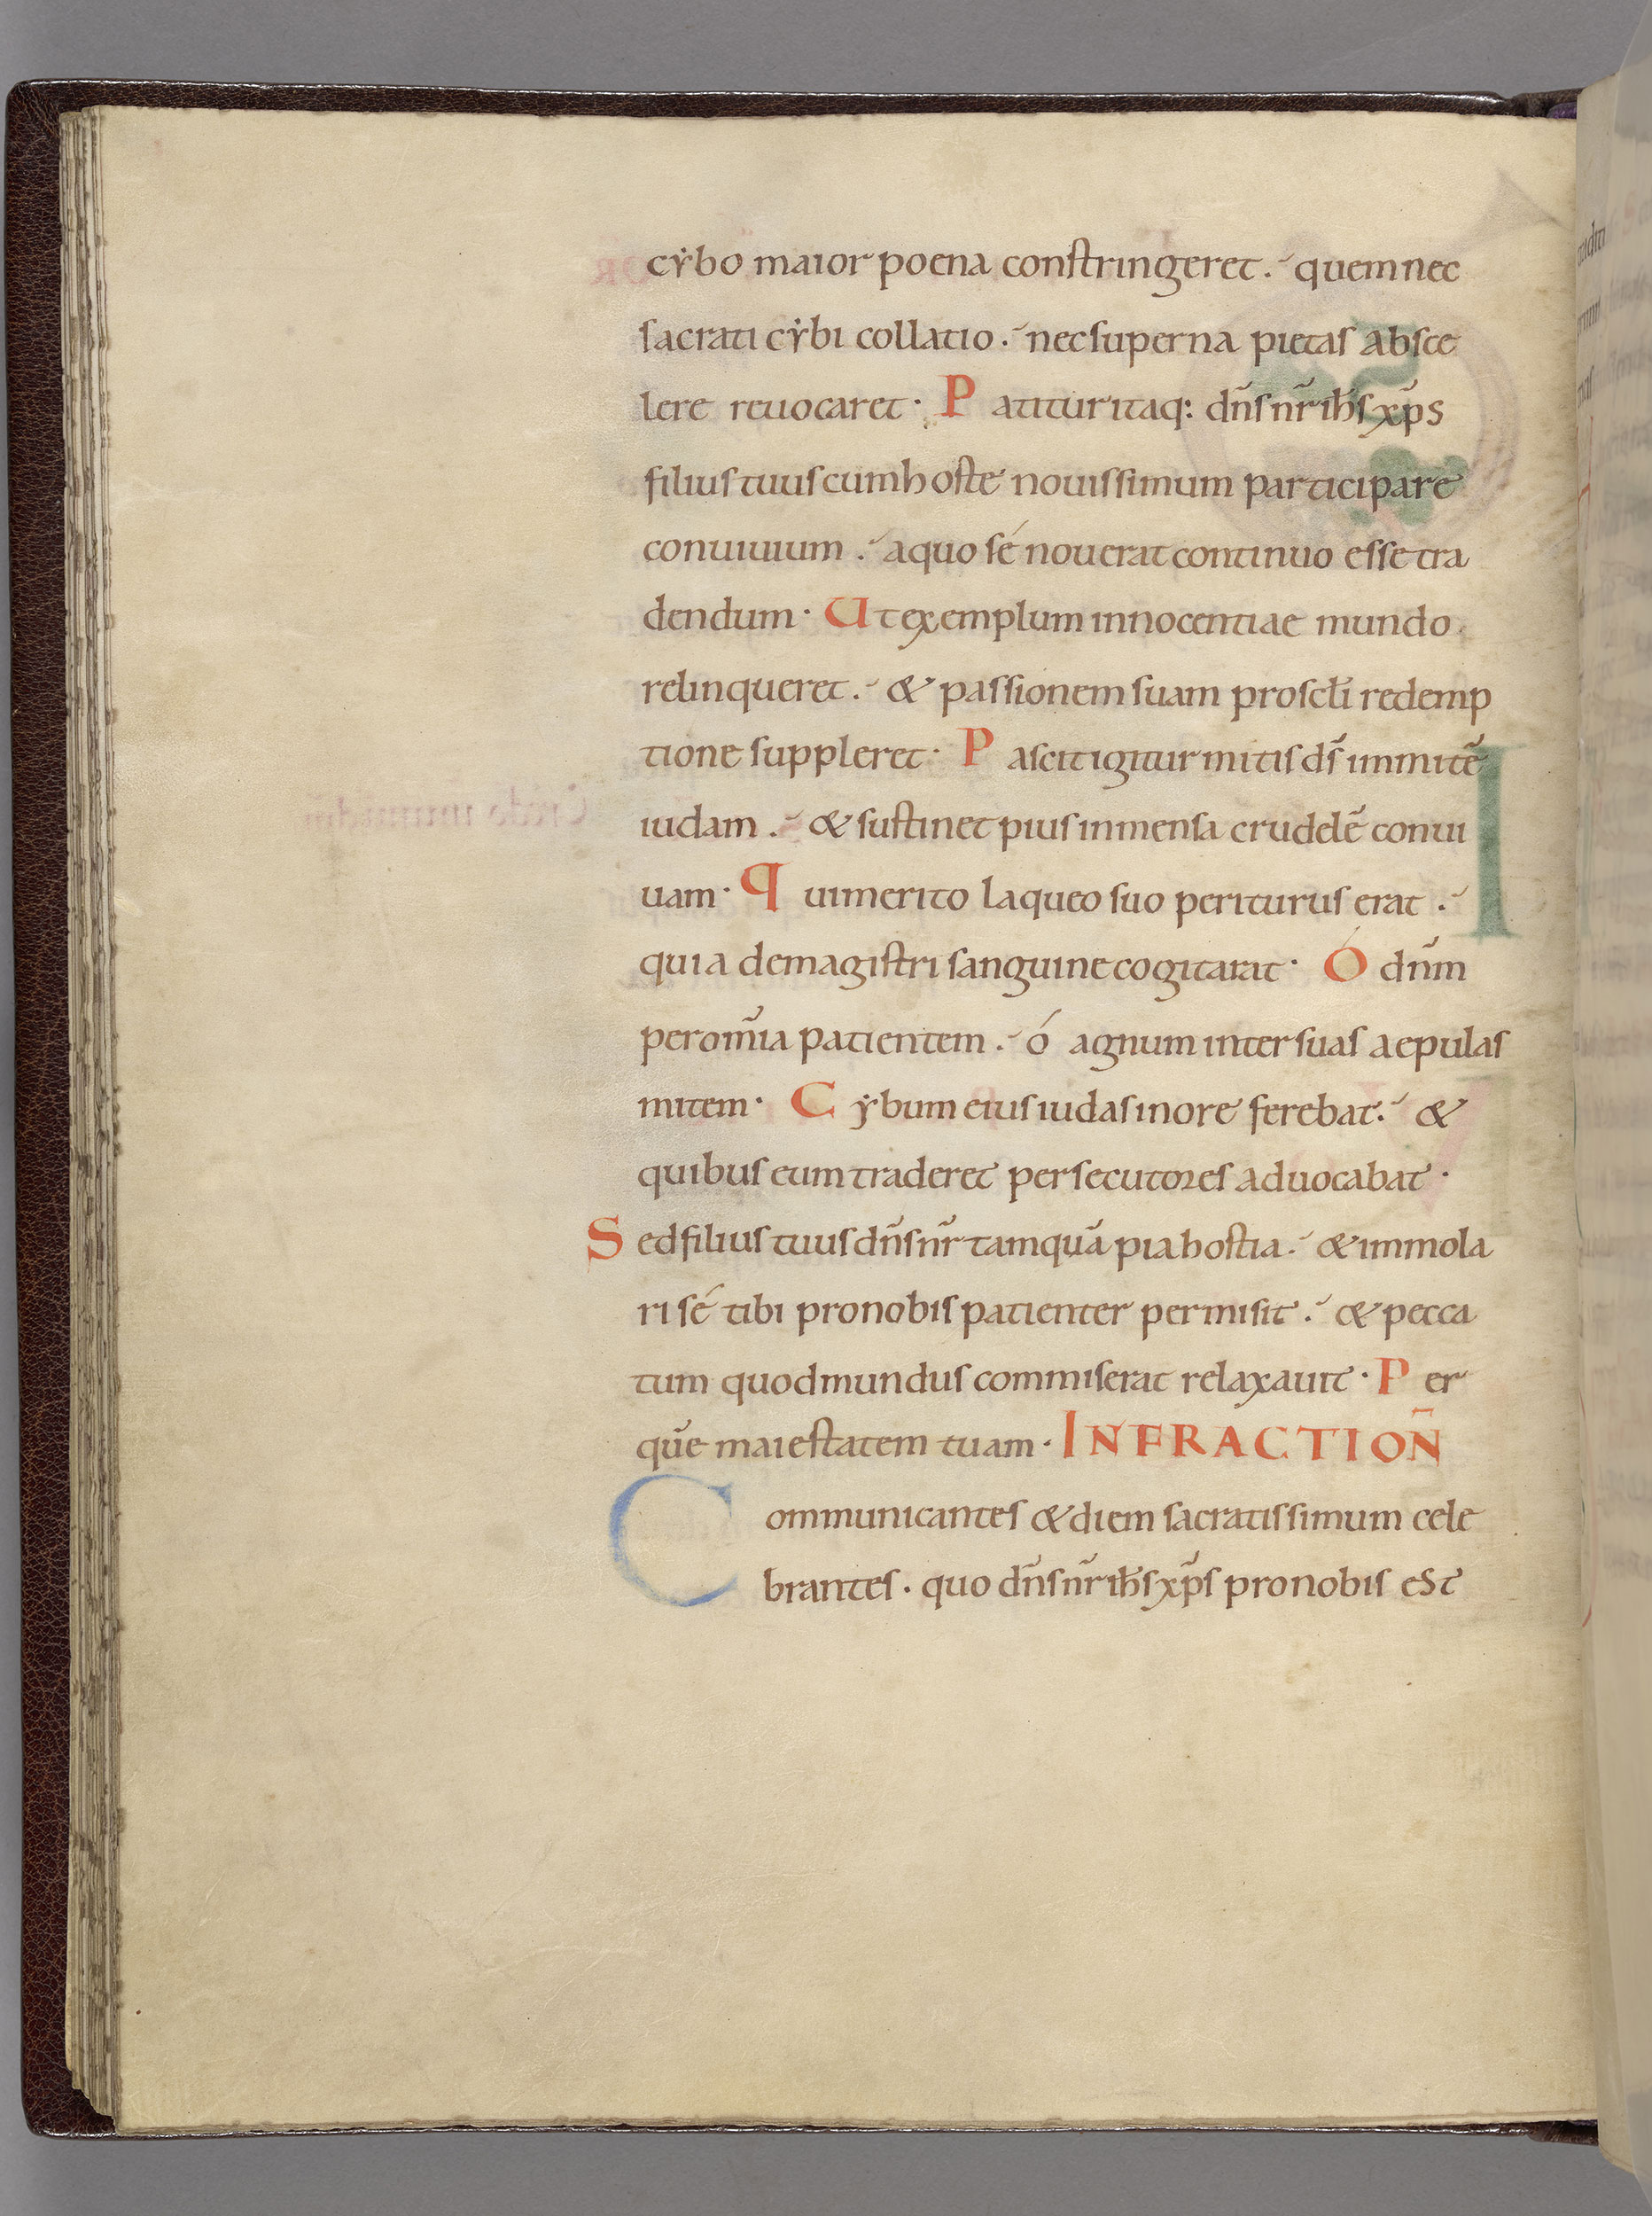 cẏbo maior poena constringeret. quem nec
sacrati cẏbi collatio. nec superna pietas absce
lere reuocaret. Patitur itaq: dn̄s nr̄ ih̄s xp̄s
filius tuus cum hoste nouissimum participare
conuiuium. a quo sé nouerat continuo esse tra
dendum. Ut exemplum innocentiae mundo
relinqueret. & passionem suam pro scl̄i redemp
tione suppleret. Pascit igitur mitis ds̄ immitē
iudam. & sustinet pius in mensa crudelē conui
uam. Qui merito laqueo suo periturus erat.
quia de magistri sanguine cogitarat. Ó dn̄m
per om̄ia patientem. ó agnum inter suas aepulas
mitem. Cẏbum eius iudas in ore ferebat. &
quibus eum traderet persecutores aduocabat.
Sed filius tuus dn̄s nr̄ tamquā pia hostia. & immola
ri sé tibi pro nobis patienter permisit. & pecca
tum quod mundus commiserat relaxauit. Per
quē maiestatem tuam. INFRACTION̄
Communicantes & diem sacratissimum cele
brantes. quo dn̄s nr̄ ih̄s xp̄s pro nobis est